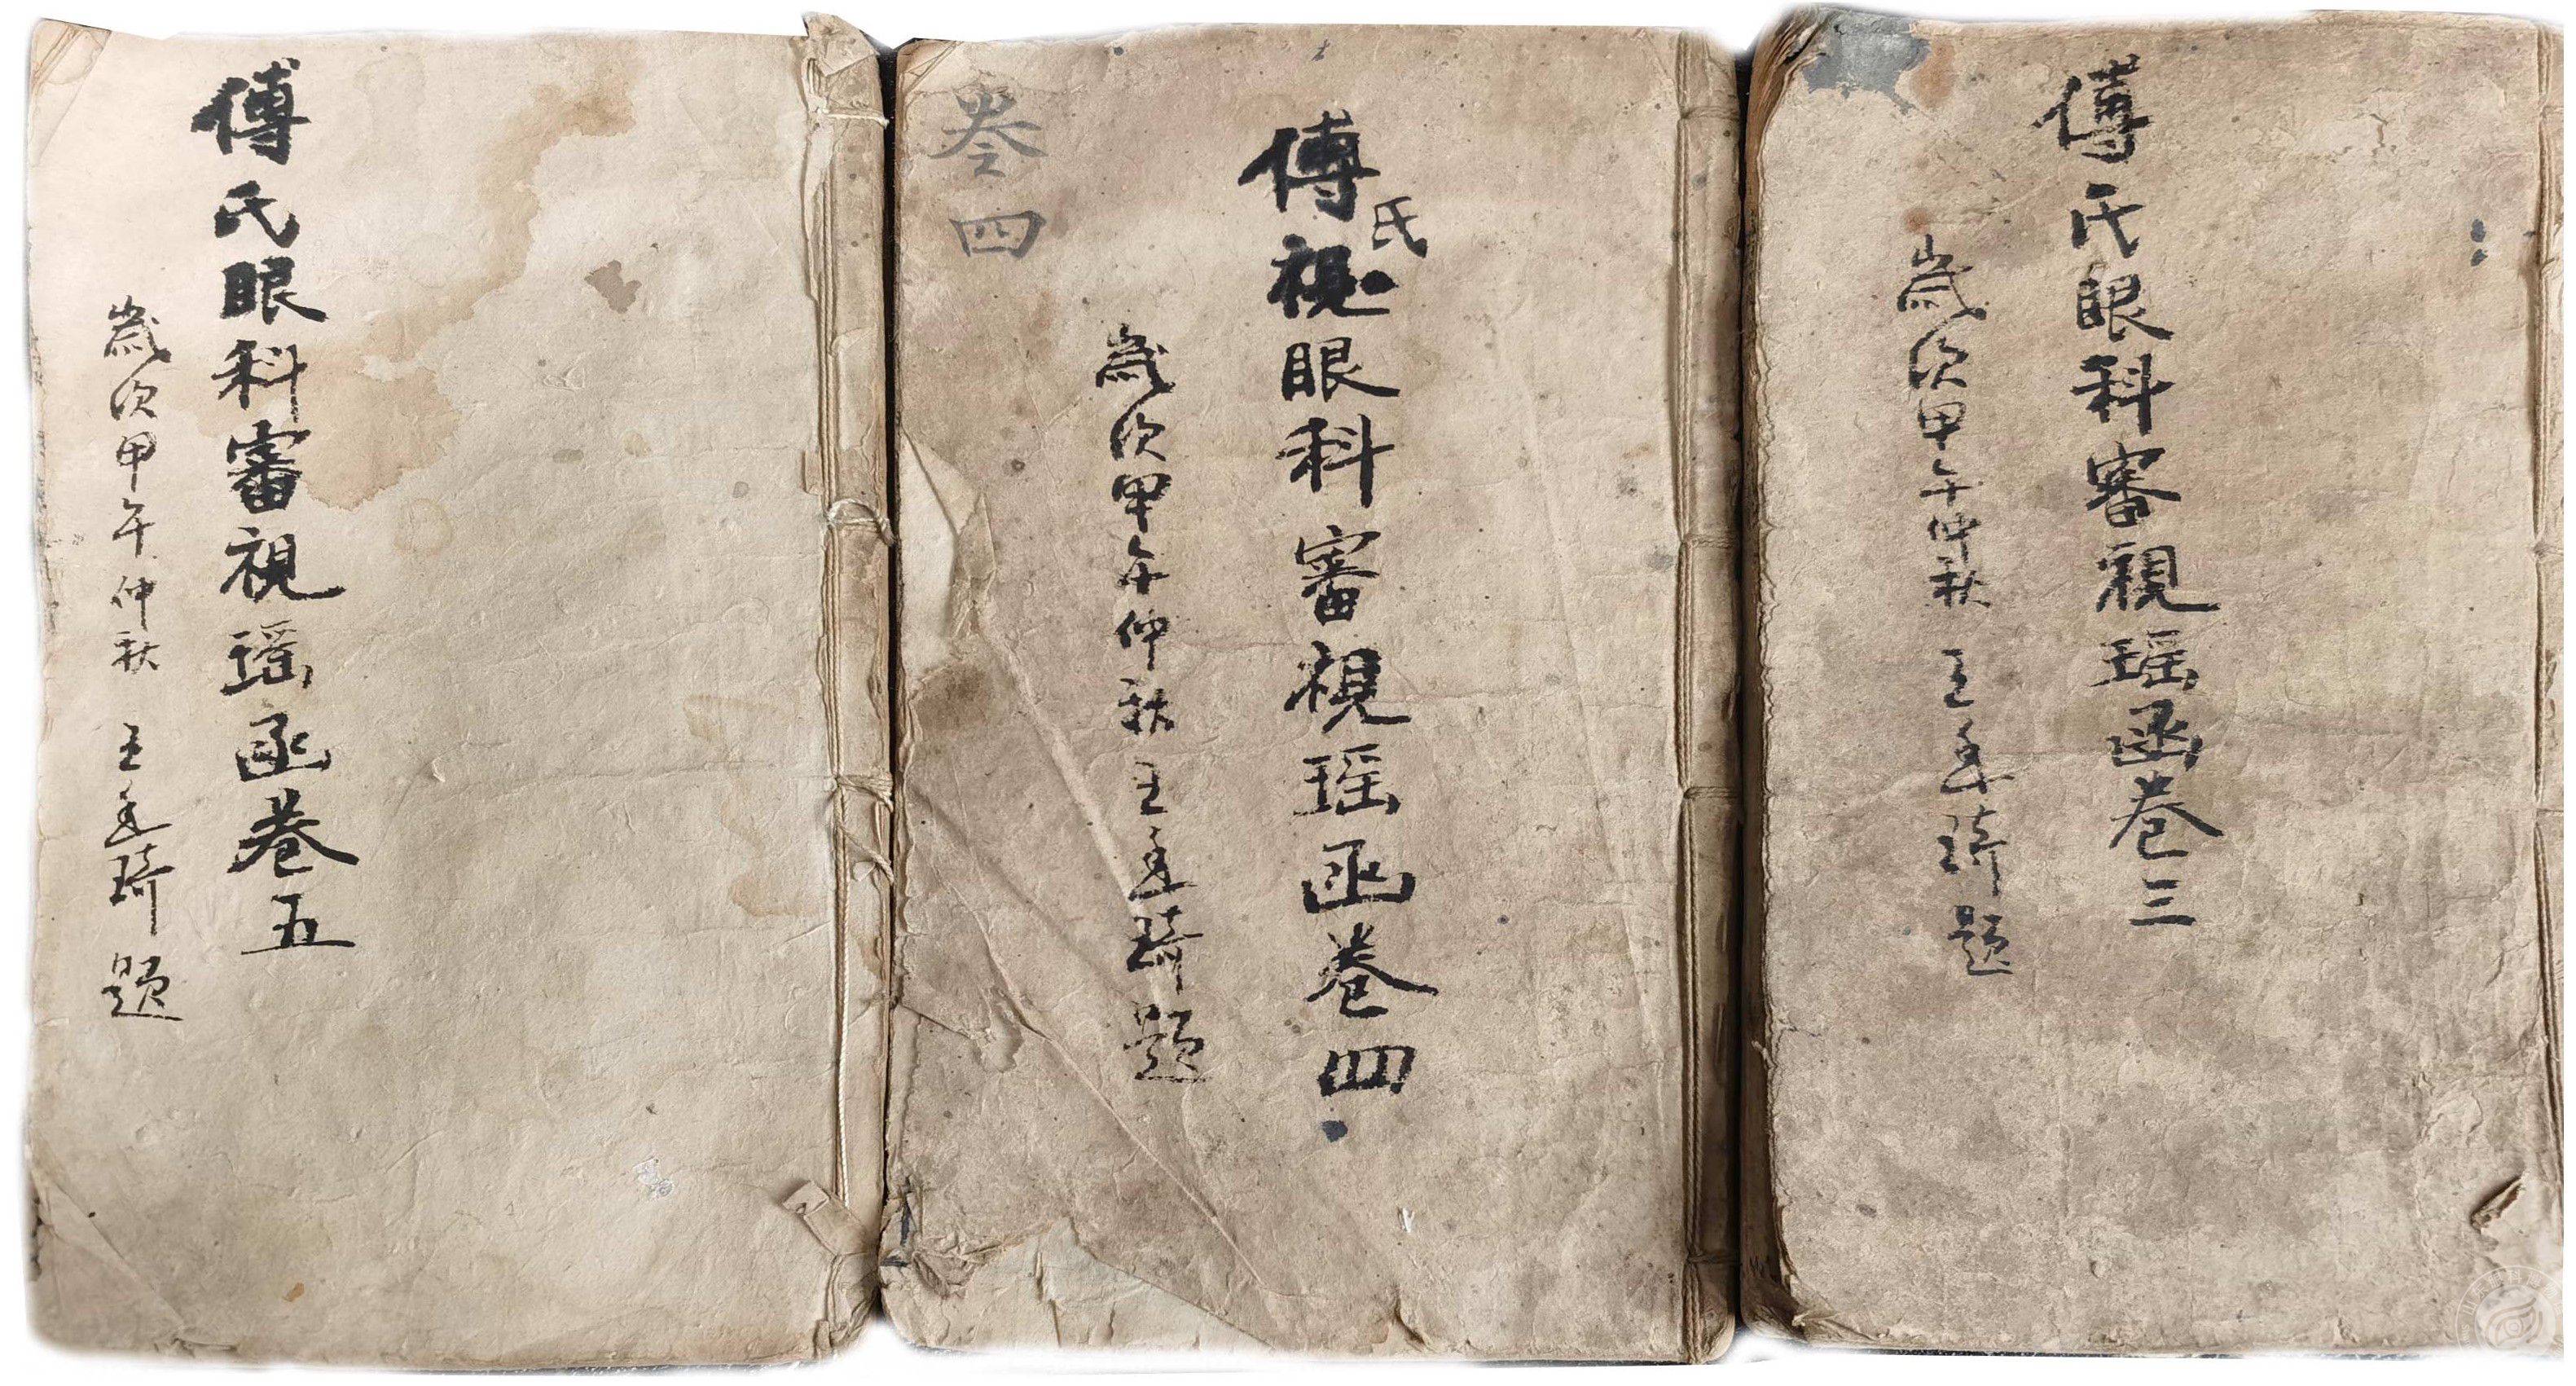 傅氏眼科審視瑶函巻三
歲次甲午仲秋 王兆琦題
傅氏視眼科審視瑶函巻四
歲次甲午仲秋 王兆琦題
巻四
傅氏眼科審視瑶函巻五
歲次甲午仲秋 王兆琦題